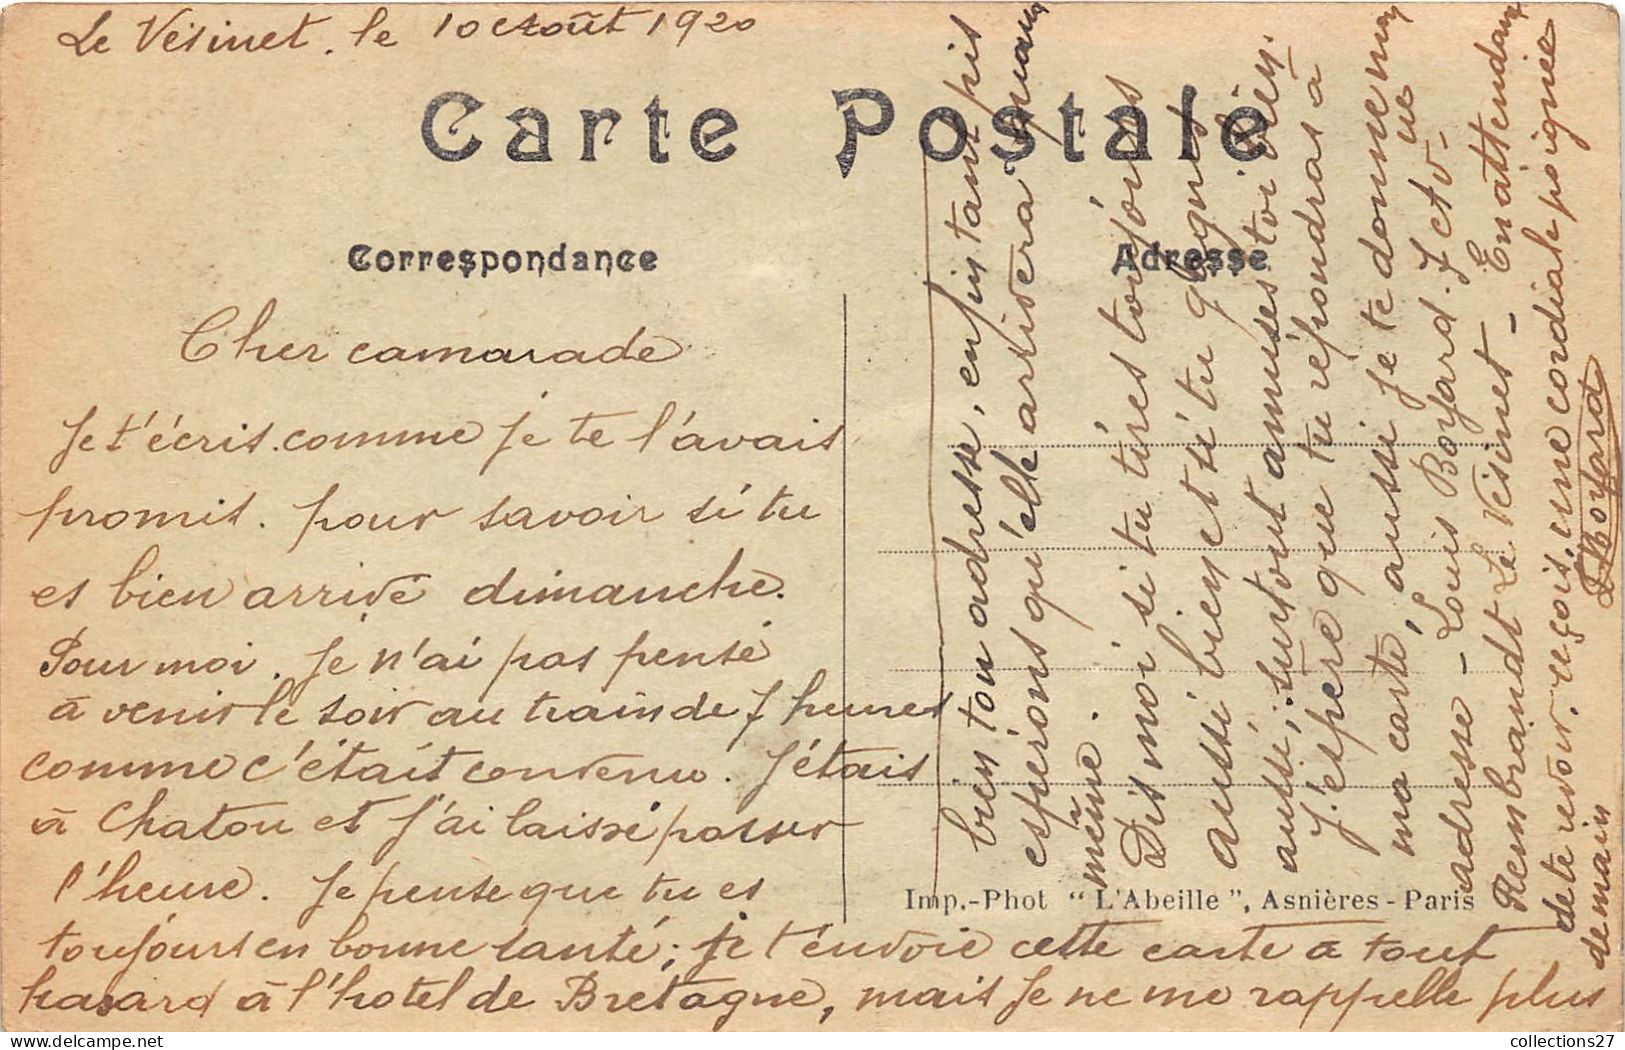 Le Vésinet. le 10 Août 1920
Carte Postale
Correspondance
Adresse
Cher camarade
Je t'écris. comme je te l'avais
promis. pour savoir si tu
es bien arrivé dimanche.
Pour moi. je n'ai pas pensé
à venir le soir au train de 7 heures
comme c'était convenu. J'étais
à Chatou et j'ai laissé passer
l'heure. Je pense que tu es
toujours en bonne santé; je t'envoie cette carte à tout
hasard à l'hotel de Bretagne, mais je ne me rappelle plus
bien ton adresse, enfin tant pis
espérons qu'elle arrivera quand
même.
Dis moi si tu tires toujours
aussi bien et si tu gagnes
aussi, surtout amuses toi bien.
J'espère que tu répondras à
ma carte, aussi je te donne mon
adresse - Louis Boyard. 7 ctv- rue
Rembrandt Le Vésinet - En attendant
de te revoir. reçois, une cordiale poignée
de main
L Boyard
Imp.-Phot "L'Abeille", Asnières-Paris
collections27